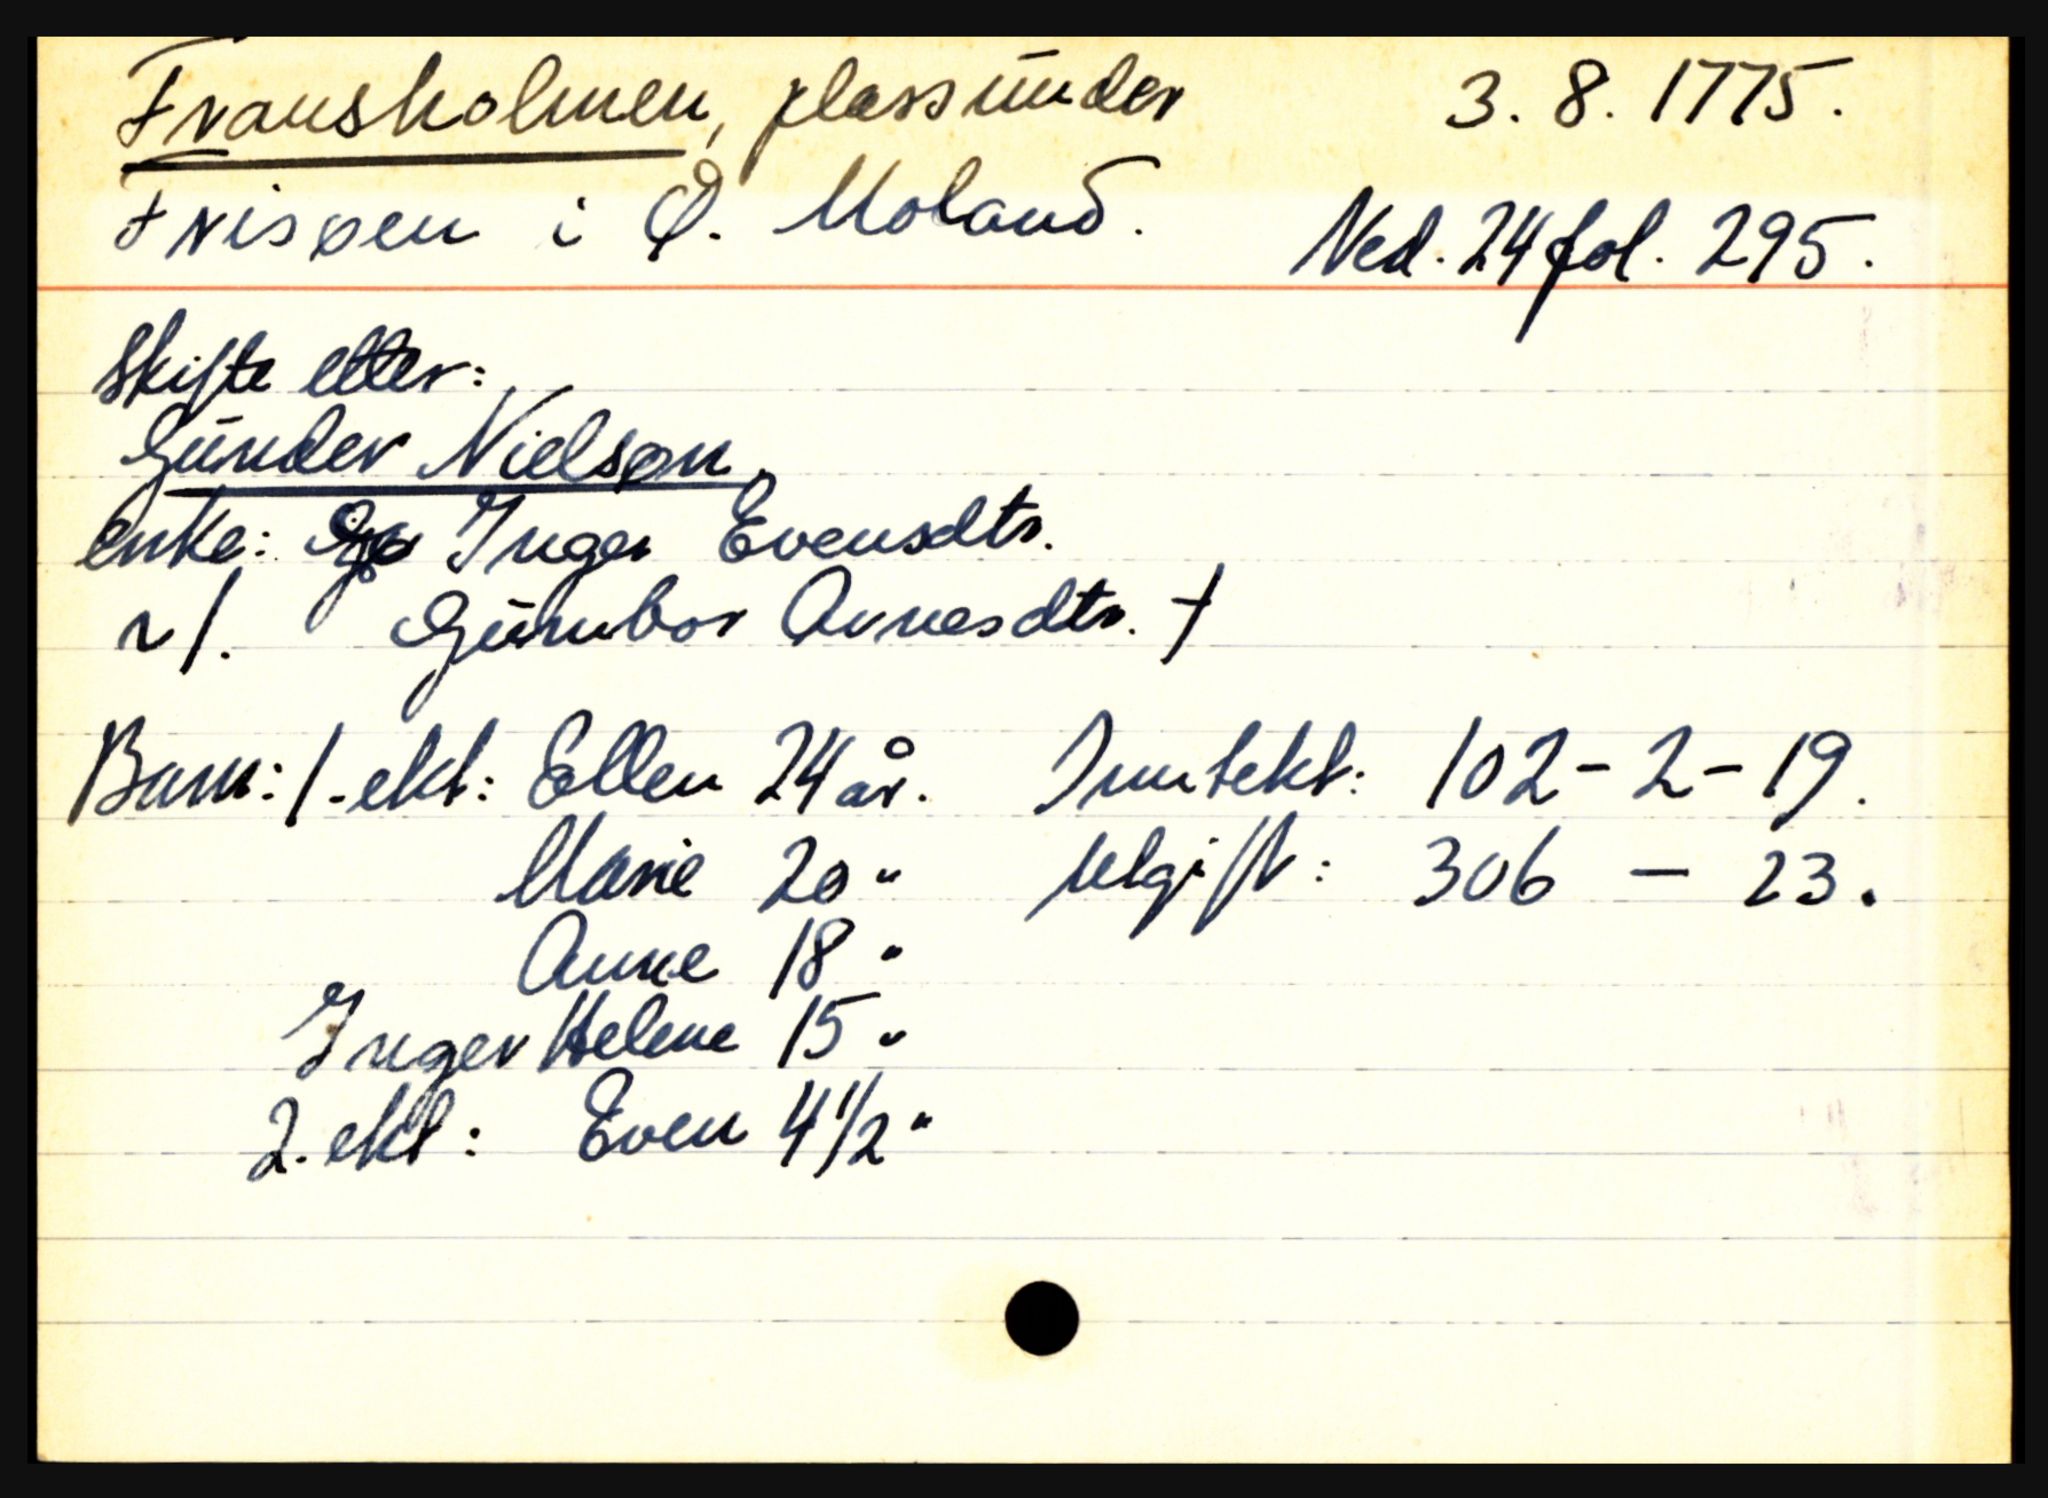 Fransholmen, plass under 3. 8. 1775.
Frisøen i Ø. Moland. Ned. 24 fol. 295.
Skifte etter:
Gunder Nielsøn.
enke: Inger Evensdtr.
v/. Gunbor Arnesdtr. †
Barn: 1. ekt: Ellen 24 år. Inntekt: 102 - 2 - 19.
Marie 20 " Utgift: 306 — 23.
Anne 18 "
Inger Helene 15 "
2. ekt: Even 4 1/2 "